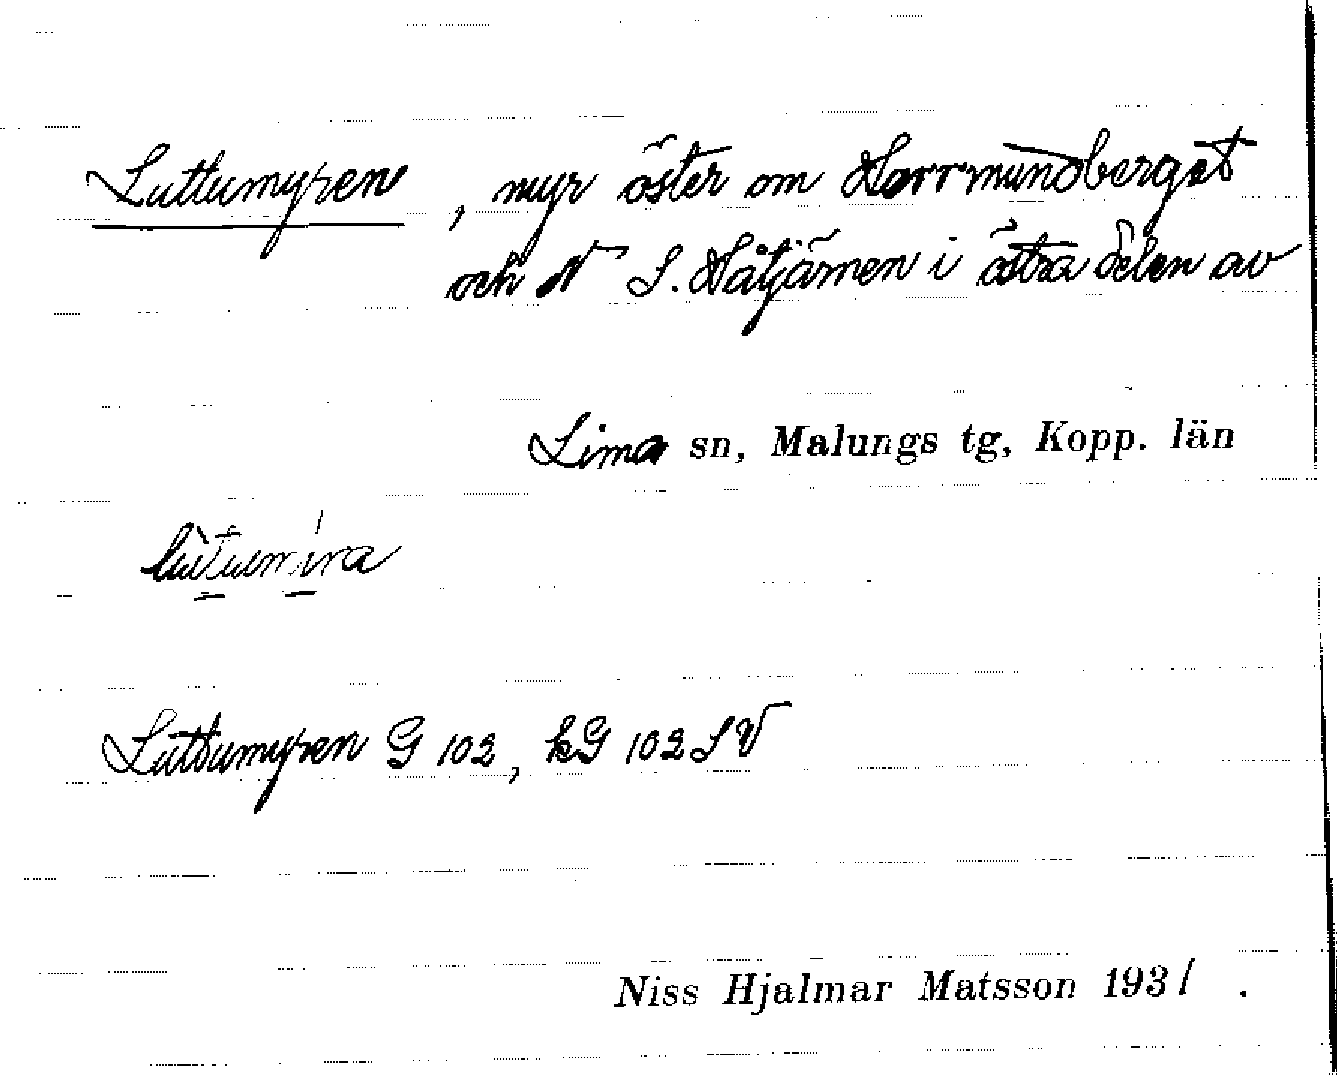 Luttumyren, myr öster om Horrmundberget
och N S. Håtjärnen i östra delen av
Lima sn, Malungs tg, Kopp. län
Luttumyren G 102, kG 102 SV
Niss Hjalmar Matsson 1931.